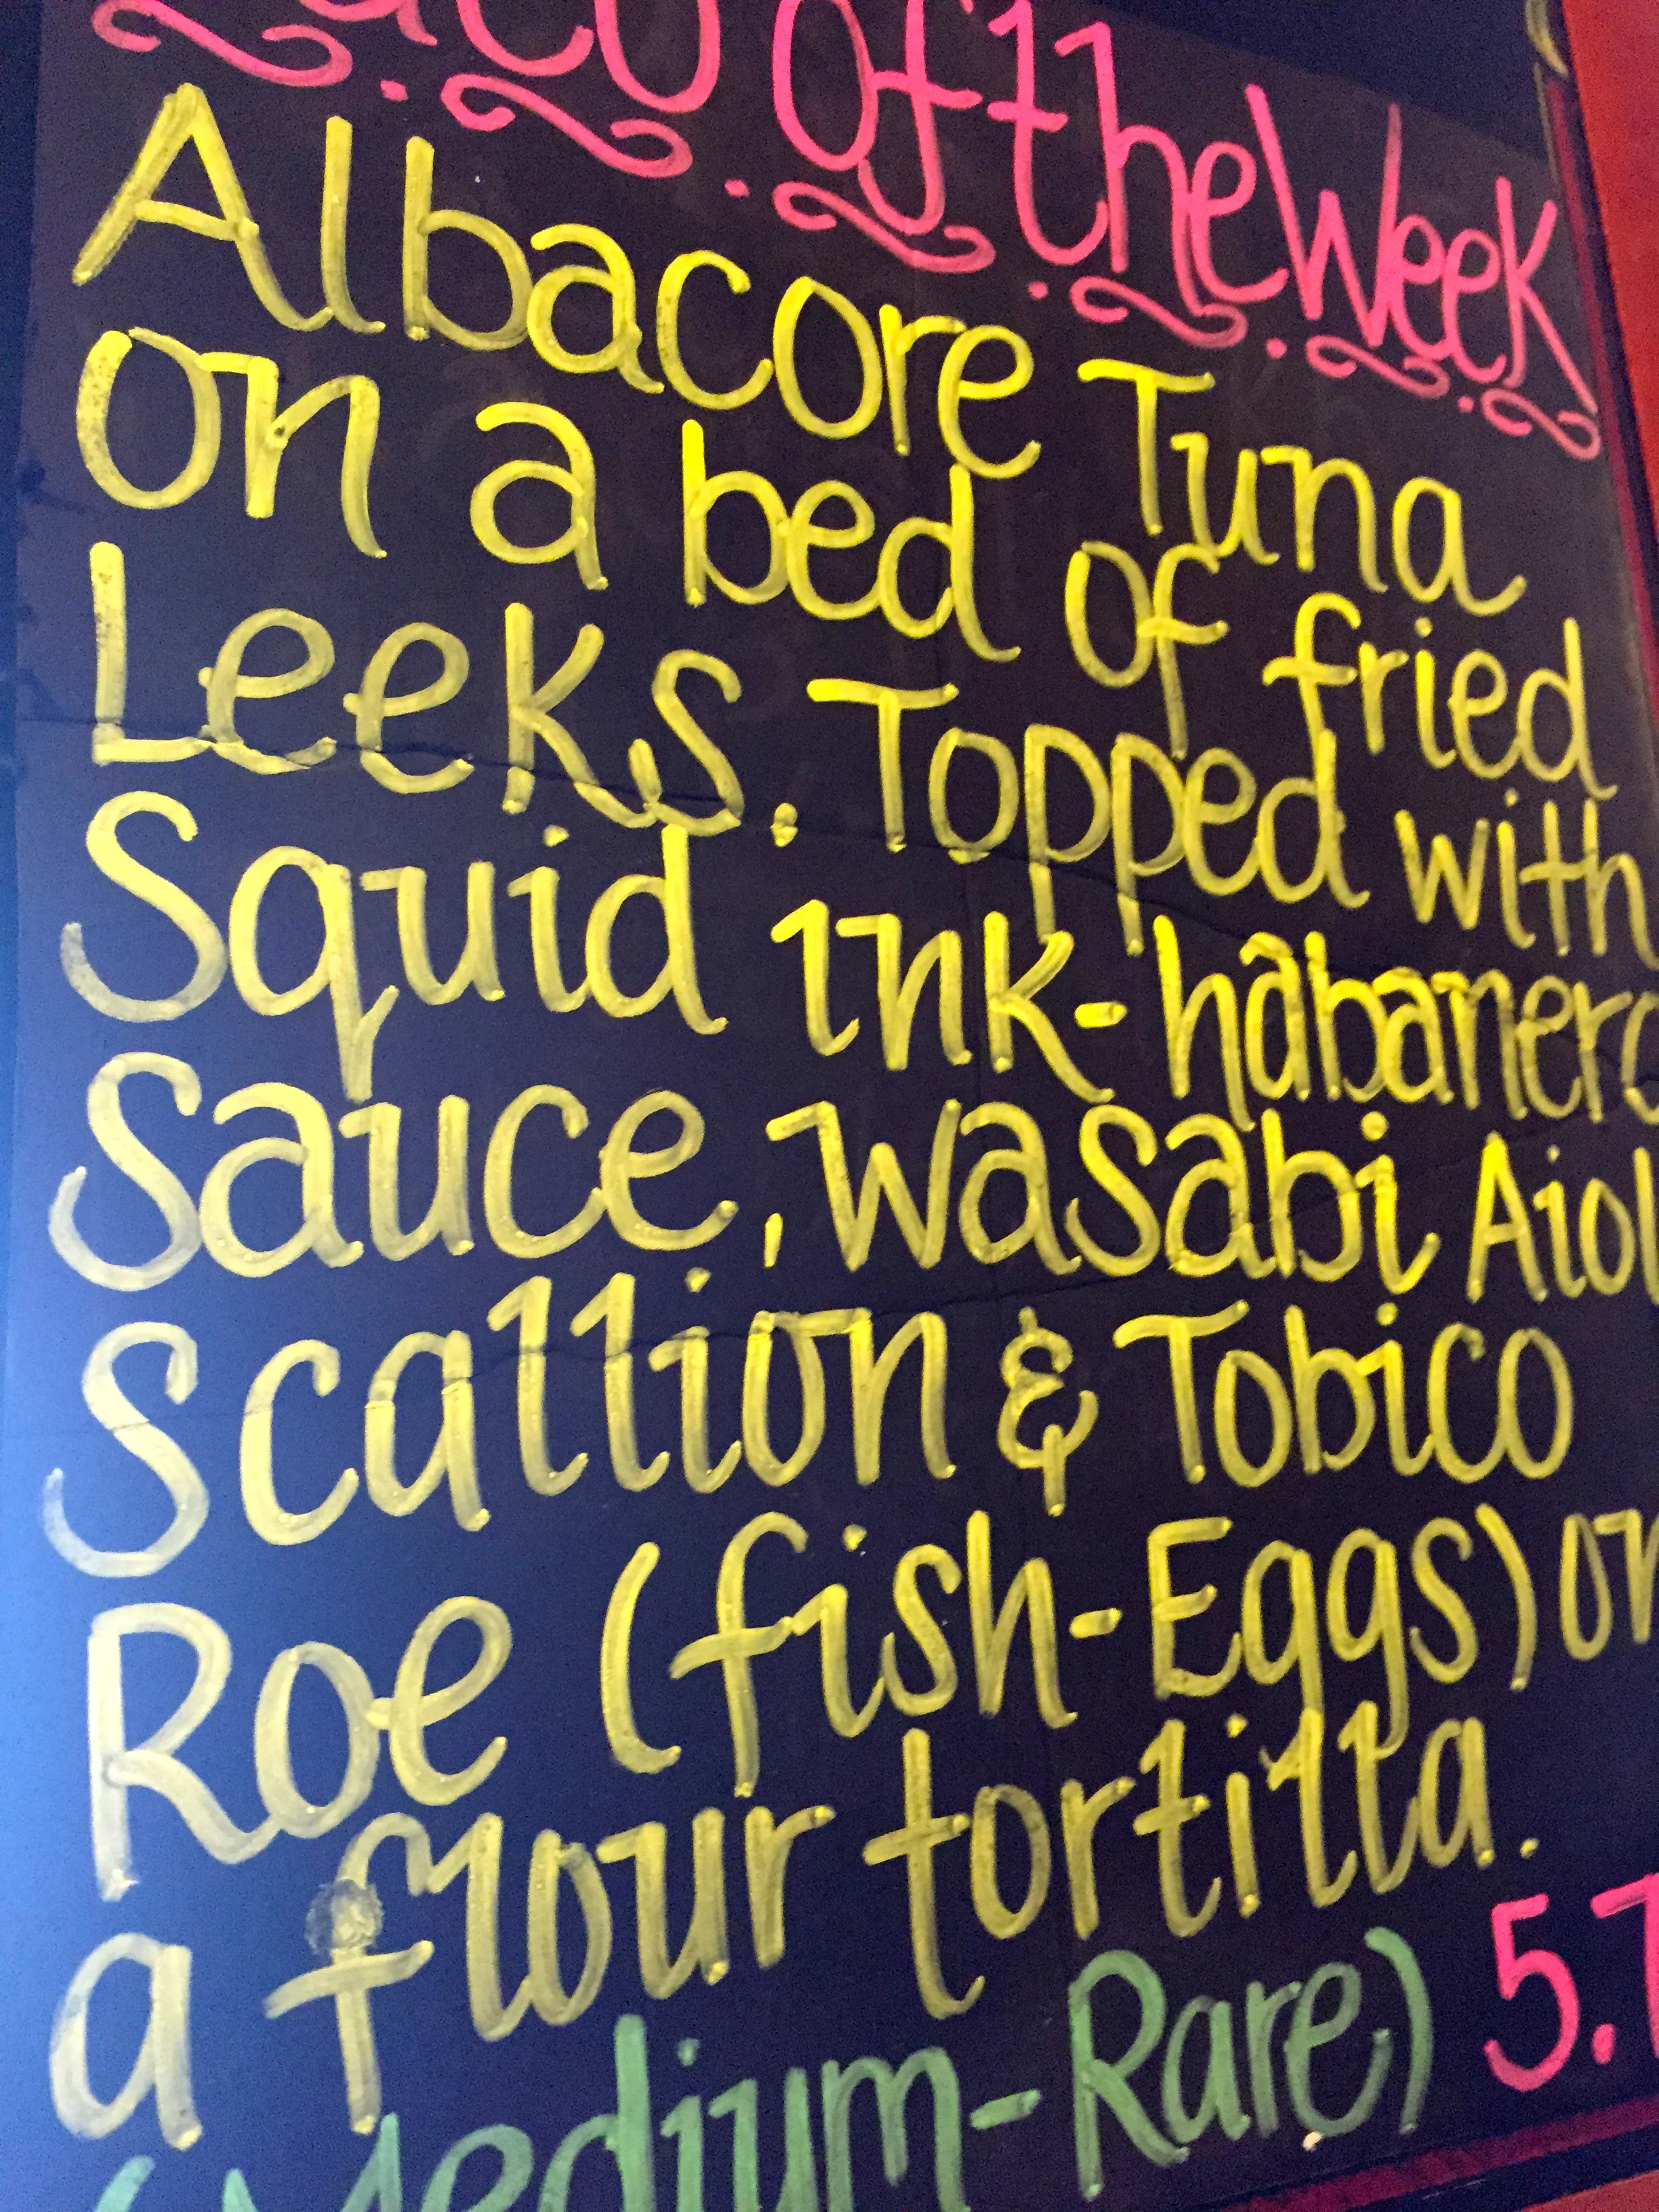 Taco Of the Week
Albacore Tuna
on a bed of fried
Leeks. Topped with
Squid ink-habanero
Sauce, wasabi Aiol
Scallion & Tobico
Roe (fish-Eggs) on
a flour tortilla.
(Medium-Rare) 5.7